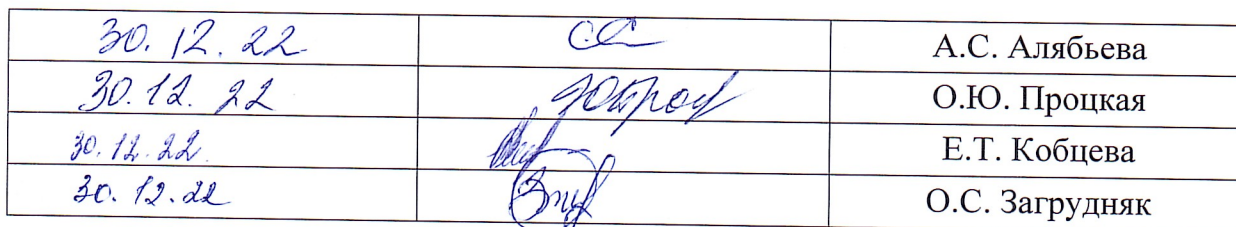 30.12.22 А.С. Алябьева
30.12.22 О.Ю. Процкая
30.12.22 Е.Т. Кобцева
30.12.22 О.С. Загрудняк